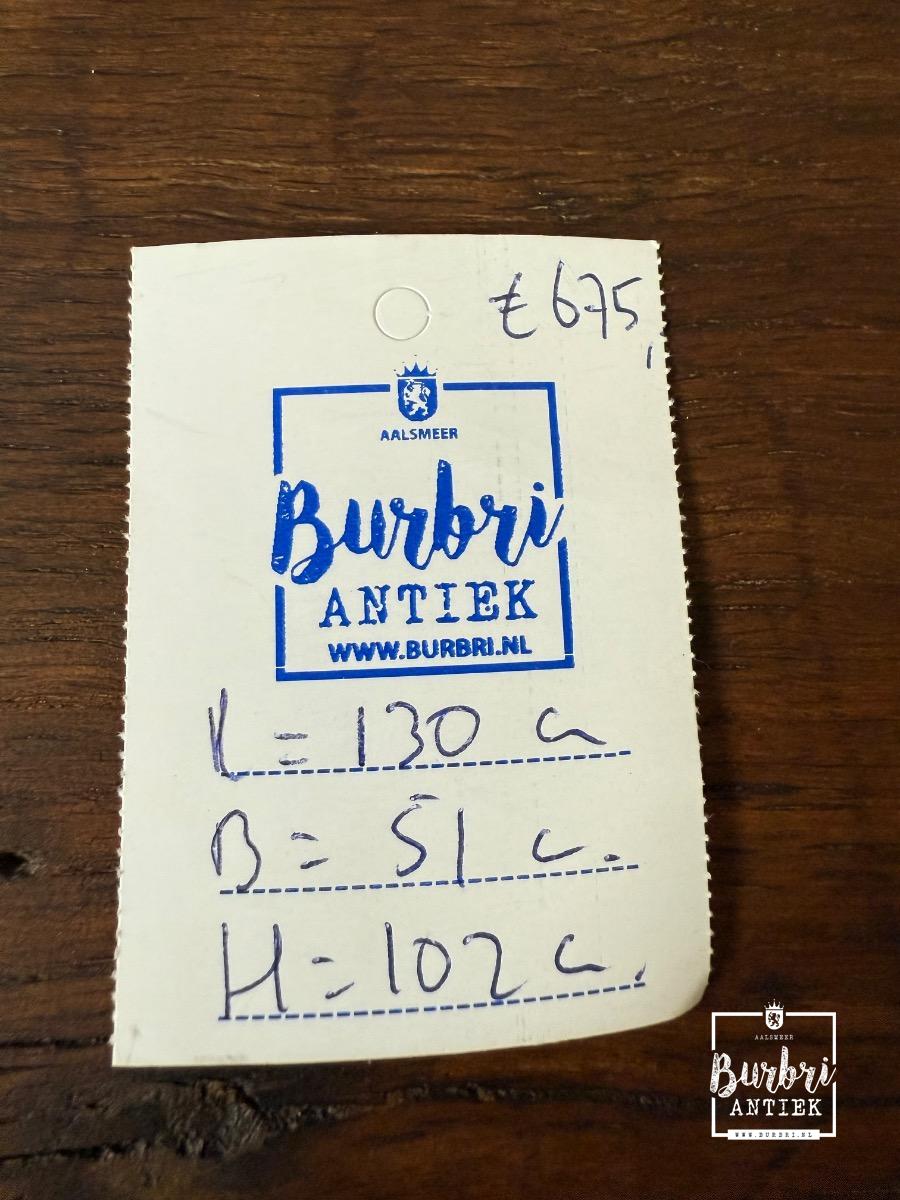 € 675,
AALSMEER
Burbri
ANTIEK
WWW.BURBRI.NL
l = 130 c
B = 51 c.
H = 102 c.
AALSMEER
Burbri
ANTIEK
WWW.BURBRI.NL